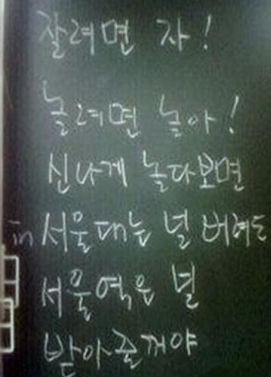 잘려면 자!
놀려면 놀아!
신나게 놀다보면
서울대는 널 버려도
서울역은 널
받아줄꺼야